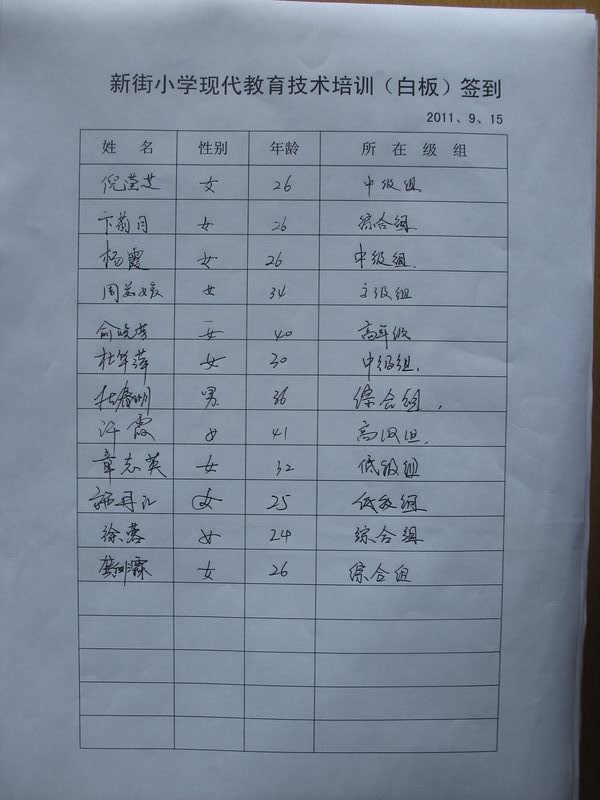 新街小学现代教育技术培训（白板）签到
2011、9、15
姓 名 性别 年龄 所 在 级 组
倪莹芝 女 26 中级组
卞菊月 女 26 综合组
杨霞 女 26 中级组.
周 女 34 级组
俞晓芳 女 40 高年级
杜华萍 女 30 中级组.
杜春明 男 36 综合组.
许霞 女 41 高级组.
章志英 女 32 低级组
女 25 低级组
徐蓉 女 24 综合组
女 26 综合组